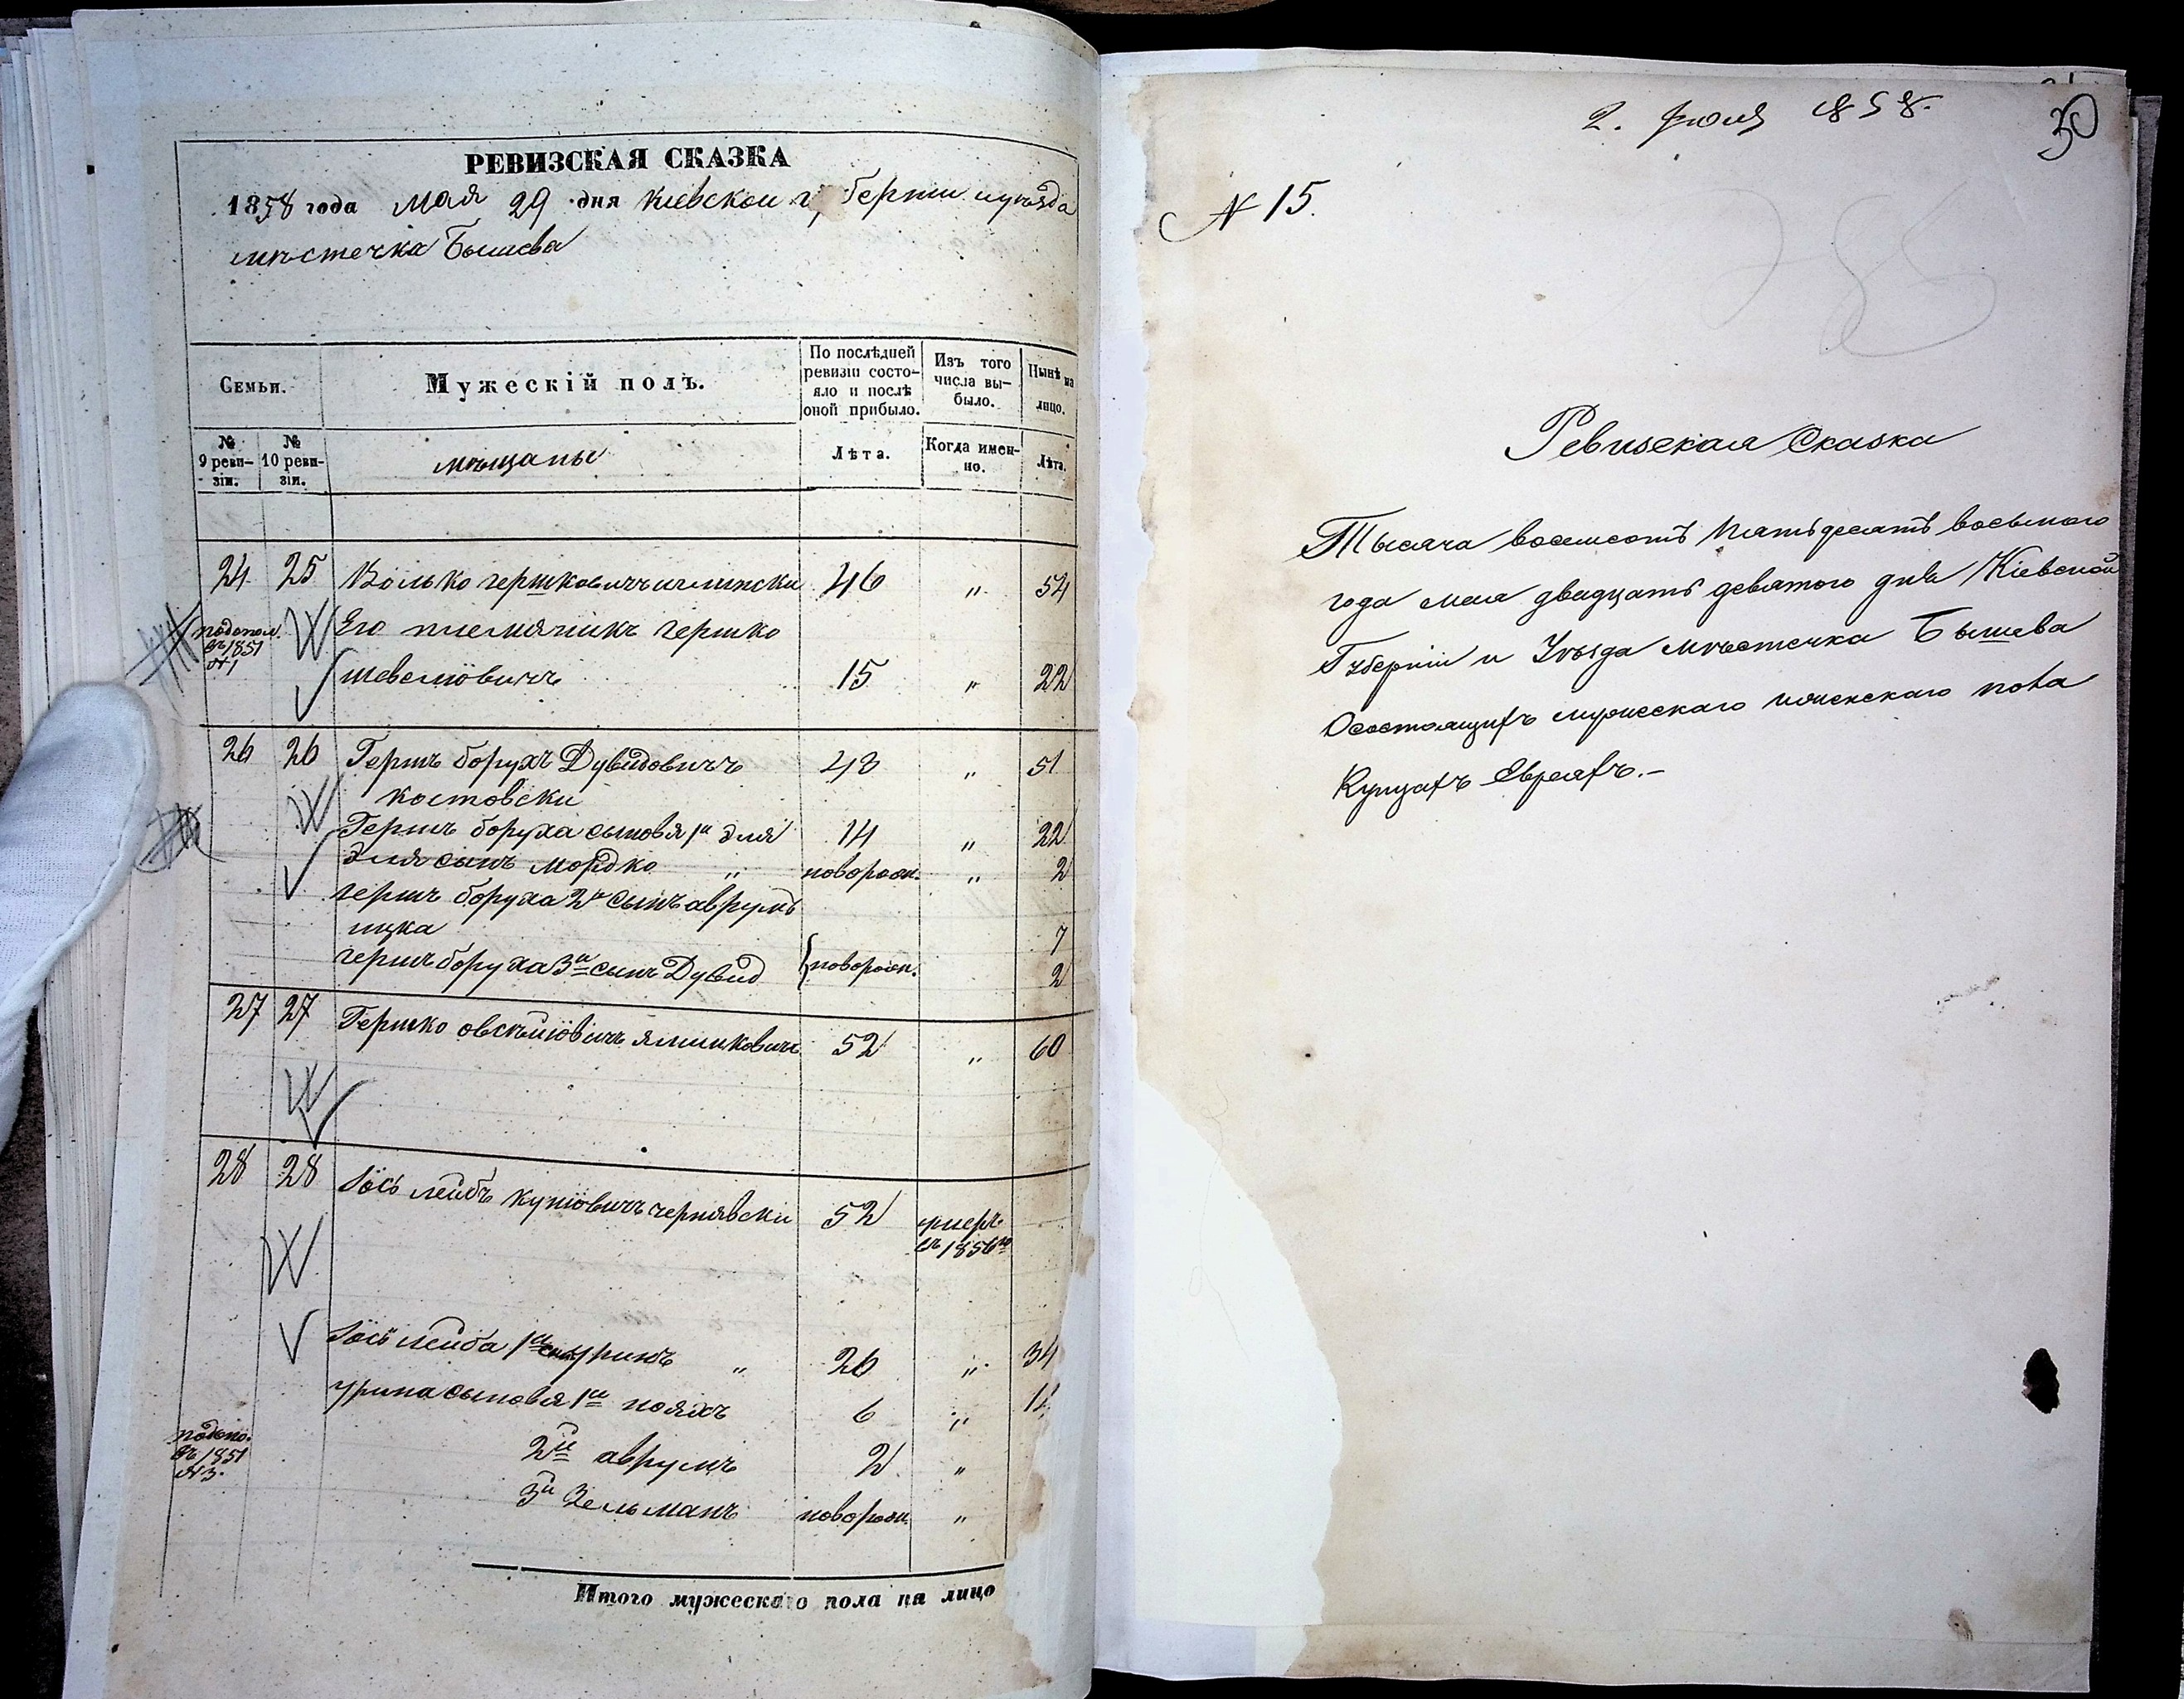 РЕВИЗСКАЯ СКАЗКА
1858 года мая 29 дня Киевской губернии и уѣзда
мѣстечка Бышева
Семьи.
Мужескій полъ.
По послѣдней ревизіи состояло и послѣ оной прибыло.
Изъ того числа выбыло.
Нынѣ на лицо.
№ 9 ревизіи.
№ 10 ревизіи.
мѣщаны
Лѣта.
Когда именно.
Лѣта.
24 25 Волько гершковичъ 46 " 54
подопол. въ 1851 №1
Его племянникъ гершко
шевелiовичъ 15 " 22
26 26 Гершъ борухъ Дувидовичъ 43 " 51
костовски
Гершъ боруха сыновя 1й Эля 14 " 22
Эля сынъ мордко " новорож. " 2
гершъ боруха 2й сынъ аврумъ
ицка 7
гершъ боруха 3й сынъ Дувид новорож. 2
27 27 Гершко овсѣйовичъ 52 " 60
28 28 Іось лейбъ чернявски 52 умеръ
въ 1856го
Іось лейба 1й сынъ уринъ " 26 " 34
урина сыновя 1й 6 "
подопо. въ 1851 №3.
2й аврумъ 2 "
3й Зельманъ новорож. "
Итого мужескаго пола на лицо
2. Іюля 1858.
30
№ 15.
Ревизская Сказка
Тысяча восемсотъ пятьдесятъ восьмого
года мая двадцать девятого дня Кіевской
Губерніи и Уѣзда мѣстечка Бышева
О состоящихъ мужескаго и женскаго пола
Купцахъ Евреяхъ.-